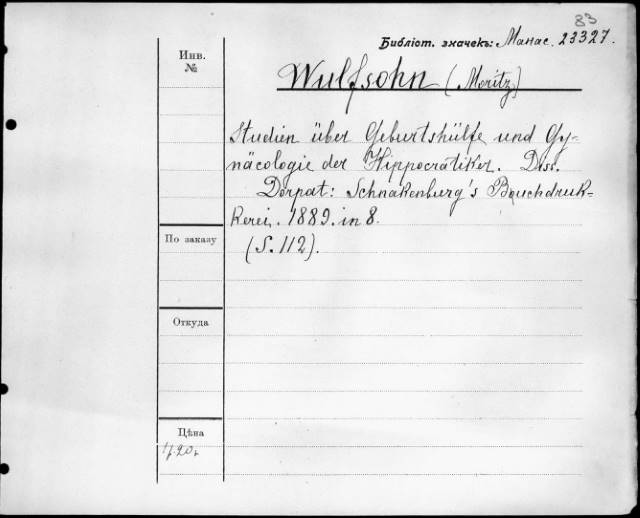 83
Библіот. значекъ: Манас. 23327.
Инв.
№
Wulfsohn (Moritz)
Studien über Geburtshülfe und Gy-
näcologie der Hippocratiker. Diss.
Dorpat: Schnakenburg's Buchdruk-
kerei. 1889. in 8.
По заказу
(S. 112).
Откуда
Цѣна